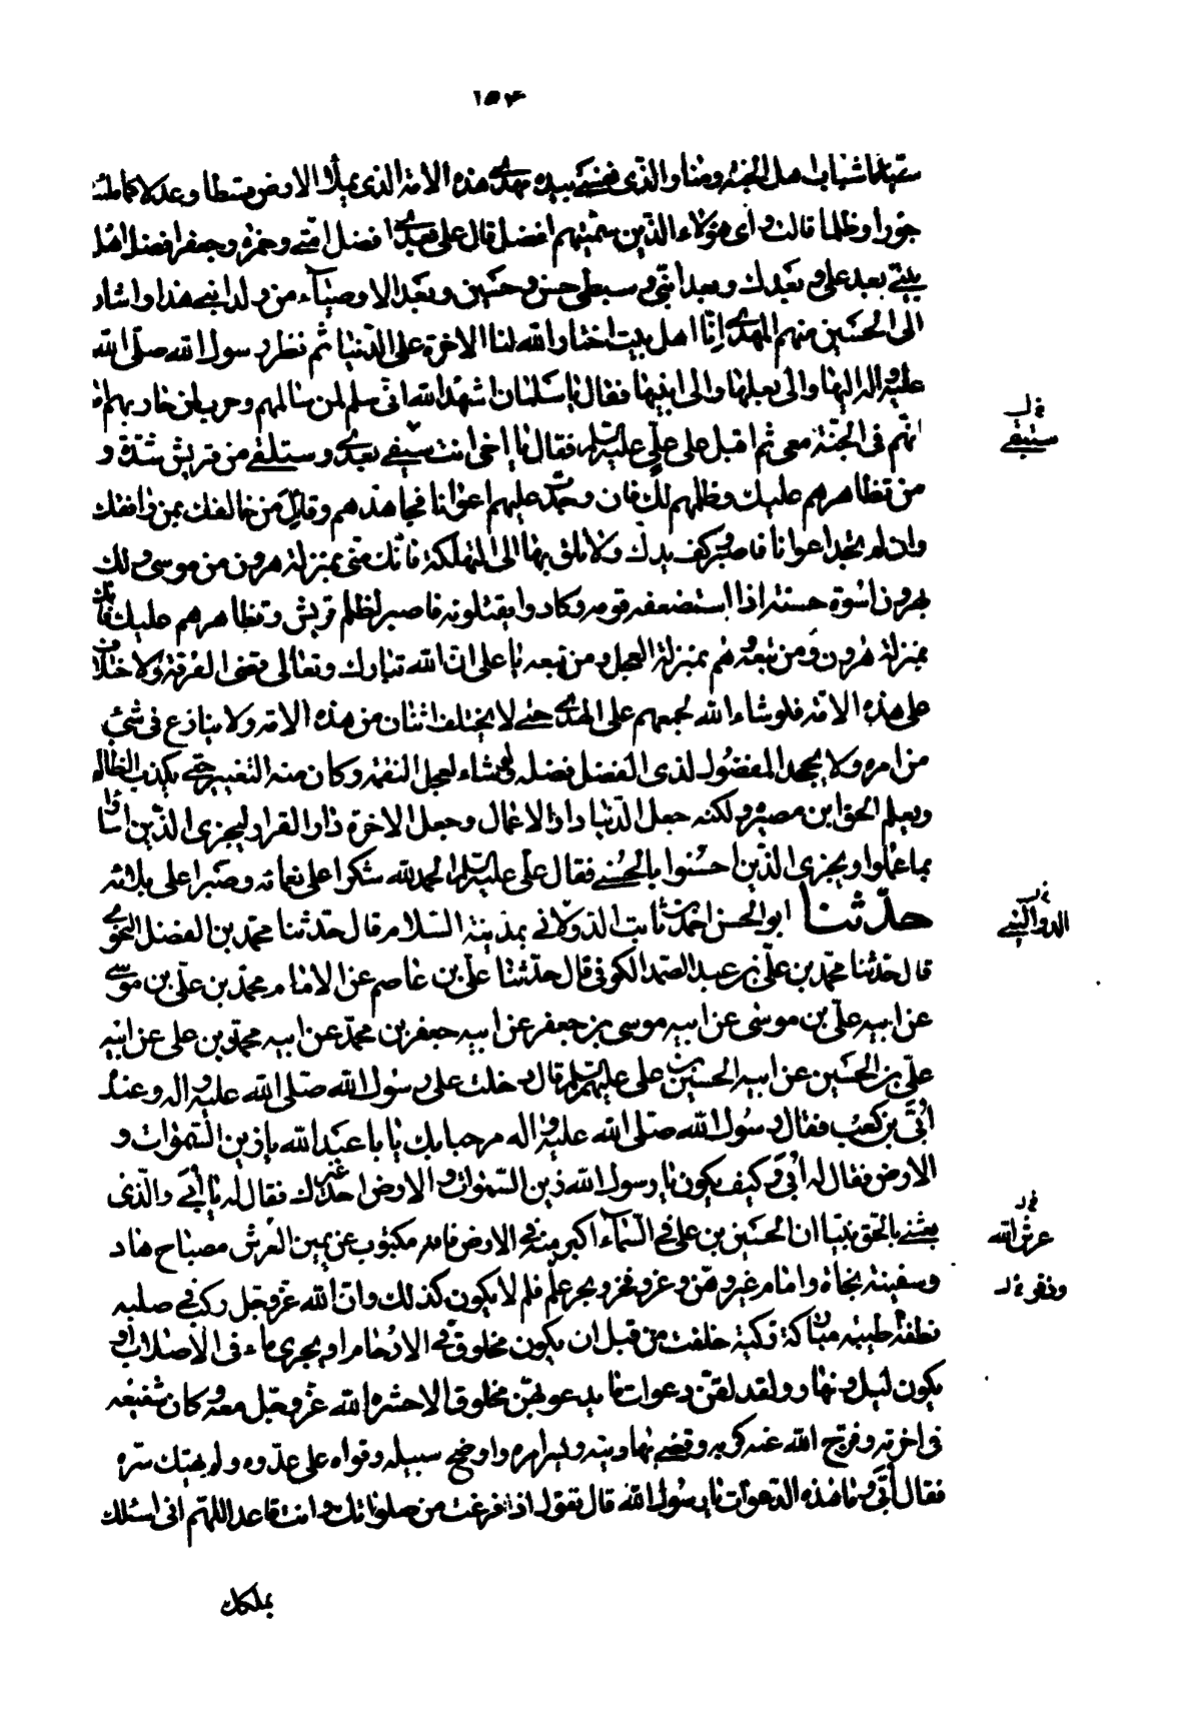 ١٥٤
سيدا شباب اهل الجنة ومنا والذى نفسى بيده مهدى هذه الامة الذى يملأ الارض قسطا وعدلا كما ملئت
جورا وظلما قالت و اى هؤلاء الذين سميتهم افضل قال على بعدى افضل امتى وحمزة وجعفر افضل اهل
بيتى بعد على و بعدك وبعد ابنى و سبطى حسن وحسين وبعد الاوصياء من ولد ابنى هذا واشار
الى الحسين منهم المهدى انا اهل بيت اختار الله لنا الاخرة على الدنيا ثم نظر رسول الله صلى الله
عليه واله اليها والى بعلها والى ابنيها فقال يا سلمان اشهد الله انى سلم لمن سالمهم وحرب لمن حاربهم اما
انهم فى الجنة معى ثم اقبل على على عليه السلم فقال يا اخى انت سيفى بعدى وستلقى من قريش شدة و
من تظاهرهم عليك وظلمهم لك فان وجدت عليهم اعوانا فجاهدهم وقاتل من خالفك بمن وافقك
وان لم تجد اعوانا فاصبر وكف يدك ولا تلق بها الى التهلكة فانك منى بمنزلة هرون من موسى ولك
بهرون اسوة حسنة اذا استضعفه قومه وكادوا يقتلونه فاصبر لظلم قريش وتظاهرهم عليك فانك
بمنزلة هرون ومن تبعه وهم بمنزلة العجل ومن تبعه يا على ان الله تبارك وتعالى قضى الفرقة ولاختلاف
على هذه الامة فلو شاء الله لجمعهم على الهدى حتى لا يختلف اثنان من هذه الامة ولا ينازع فى شئ
من امره ولا يجحد المفضول لذى الفضل فضله ولو شاء لعجل النقمة وكان منه التغيير حتى يكذب الظالم
ويعلم الحق اين مصيره ولكنه جعل الدنيا دار الاعمال وجعل الاخرة دار القرار ليجزى الذين اساؤا
بما عملوا ويجزى الذين احسنوا بالحسنى فقال على عليه السلم الحمد لله شكرا على نعمائه وصبرا على بلائه
حدثنا ابو الحسن احمد بن ثابت الدولانى بمدينة السلام قال حدثنا محمد بن الفضل النحوى
قال حدثنا محمد بن على بن عبد الصمد الكوفى قال حدثنا على بن عاصم عن الامام محمد بن على بن موسى
عن ابيه على بن موسى عن ابيه موسى بن جعفر عن ابيه جعفر بن محمد عن ابيه محمد بن على عن ابيه
على بن الحسين عن ابيه الحسين بن على عليهم السلم قال دخلت على رسول الله صلى الله عليه واله وعنده
ابى بن كعب فقال رسول الله صلى الله عليه واله مرحبا بك يا با عبد الله يا زين السموات و
الارض فقال له ابى و كيف يكون يا رسول الله زين السموات و الارض احد غيرك فقال له يا ابى والذى
بعثنى بالحق نبيا ان الحسين بن على فى السماء اكبر منه فى الارض فانه مكتوب عن يمين العرش مصباح هاد
وسفينة نجاة وامام غير وهن وعز وفخر وبحر علم فلم لا يكون كذلك وان الله عز وجل ركب فى صلبه
نطفة طيبة مباركة زكية خلقت من قبل ان يكون مخلوق فى الارحام او يجرى ماء فى الاصلاب او
يكون ليل و نهار ولقد لقن دعوات ما يدعو بهن مخلوق الا حشره الله عز وجل معه وكان شفيعه
فى اخرته وفرج الله عنه كربه وقضى بها دينه ويسر امره واوضح سبيله وقواه على عدوه ولم يهتك ستره
فقال ابى وما هذه الدعوات يا رسول الله قال تقول اذا فرغت من صلواتك وانت قاعد اللهم انى اسئلك
بملكك
ستبقى
الدواليبى
عرش الله